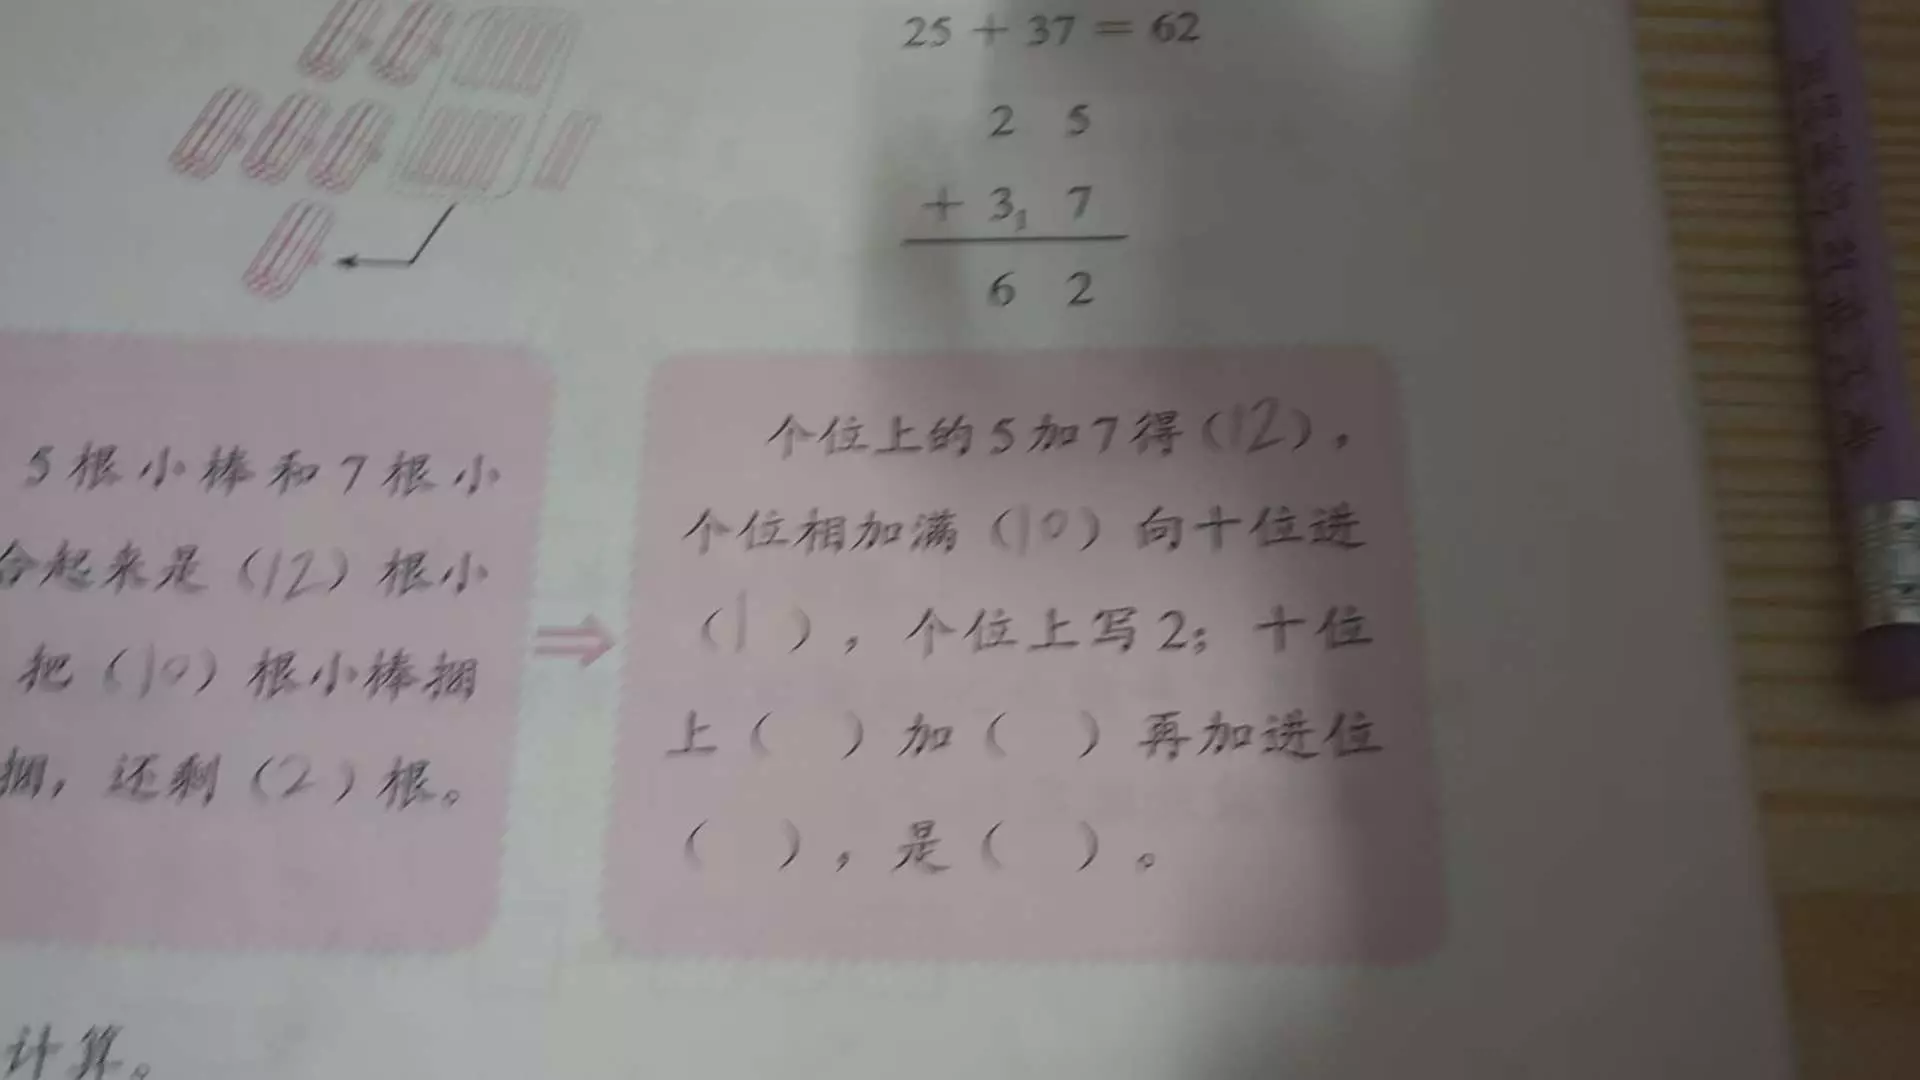 25 + 37 = 62
2 5
+ 3₁ 7
6 2
5根小棒和7根小
合起来是(12)根小
把(10)根小棒捆
捆，还剩(2)根。
个位上的5加7得(12)，
个位相加满(10)向十位进
(1)，个位上写2；十位
上( )加( )再加进位
( )，是( )。
计算。